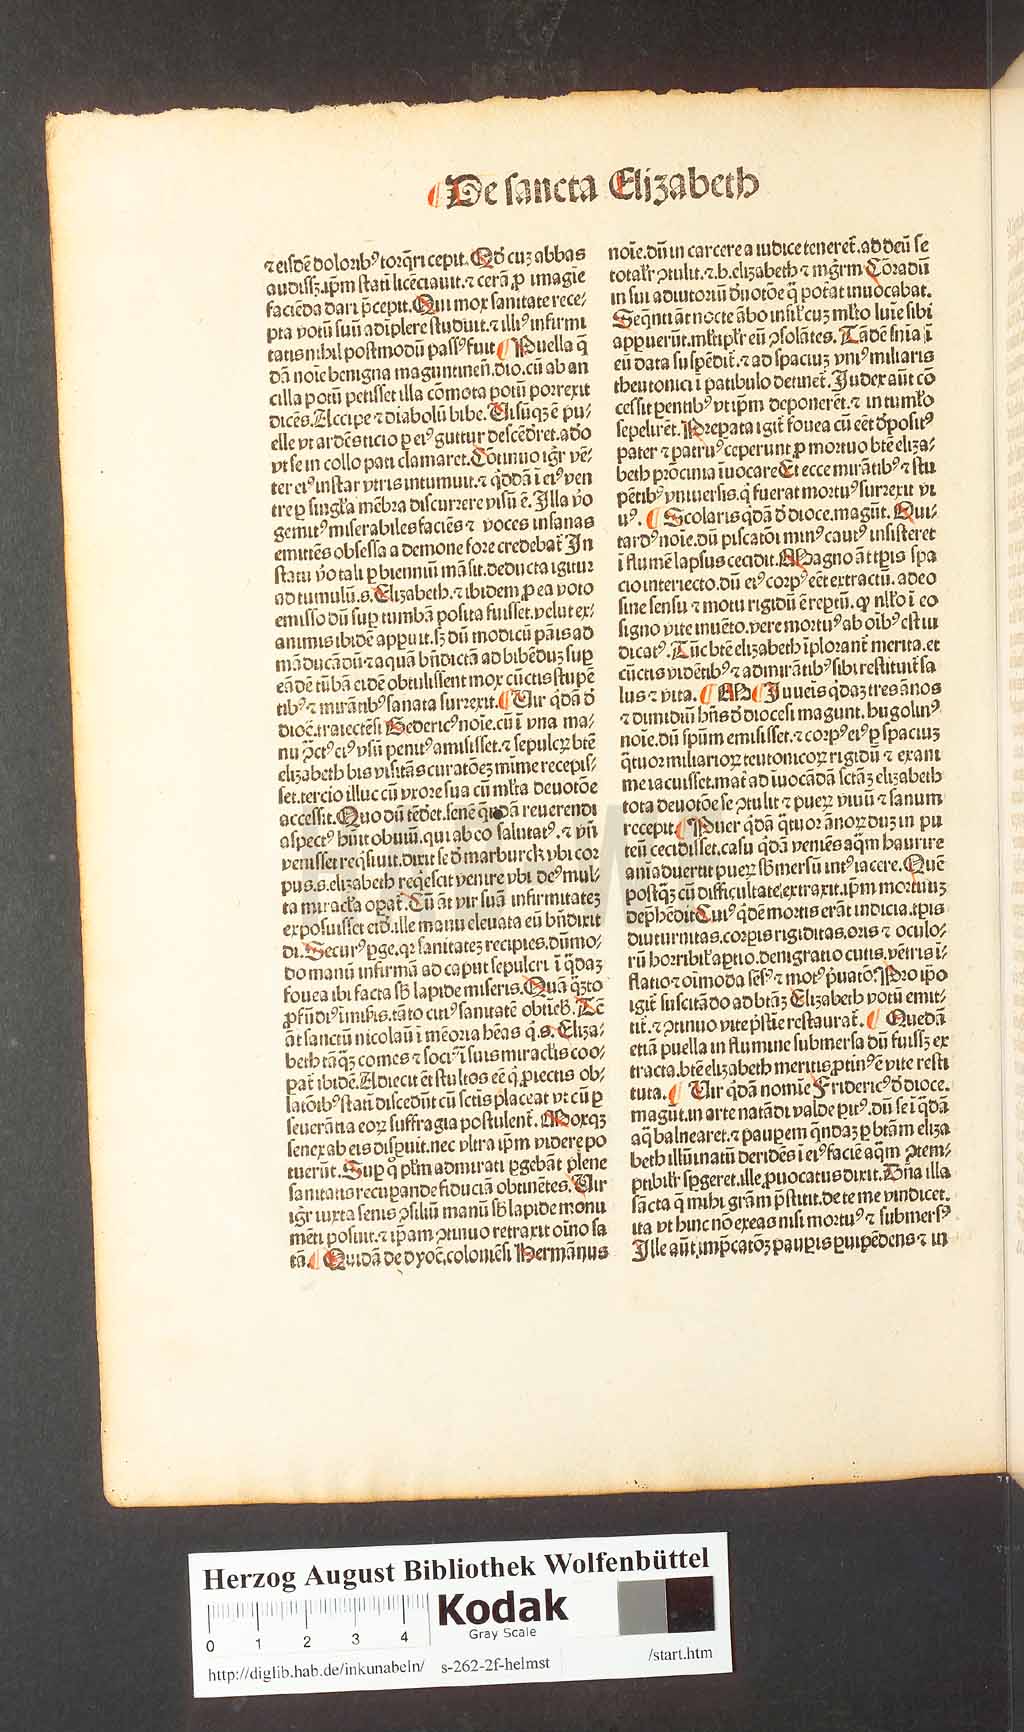 De sancta Elizabeth
⁊ eisdē dolorib⁹ torq̄ri cepit. Qd̓ cuz abbas
audissꝫ. ip̄m statī licēciauit. ⁊ cerā ꝓ imagīe
faciēda dari p̄cepit. Qui mox sanitate rece-
pta votū suū adiplere studuit. ⁊ illi⁹ infirmi
tatis nihil postmodū pass⁹ fuit Puella q̄
dā noīe benigna maguntineñ. dio. cū ab an
cilla potū petisset illa cōmota potū porrexit
dicēs. Accipe ⁊ diabolū bibe. Visūqꝫ ē pu-
elle vt ardēs ticio ꝑ ei⁹ guttur descēd̓ret. ad̓o
vt se in collo pati clamaret. Cōtinuo igr̄ vē-
ter ei⁹ instar vtris intumuit. ⁊ q̄dā ī ei⁹ ven
tre ꝑ singl̓a mēbra discurrere visū ē. Illa v̓o
gemit⁹ miserabiles faciēs ⁊ voces insanas
emittēs obsessa a demone fore credebat̄ In
statu v̓o tali ꝑ bienniū māsit. deducta igitur
ad tumulū. s. Elizabeth. ⁊ ibidem ꝓ ea voto
emisso dū suꝑ tumbā posita fuisset. velut ex-
animis ibidē appuit. sꝫ dū modicū pāis ad
māducādū ⁊ aquā bn̄dictā ad bibēduz suꝑ
eādē tūbā eidē obtulissent mox cūctis stupē
tib⁹ ⁊ mirātib⁹ sanata surrexit. Vir q̄dā d̓
dioc̄. traiectēsi Hederic⁹ noīe. cū ī vna ma-
nu ꝯct⁹ ei⁹ vsū penit⁹ amisisset. ⁊ sepulcrꝫ btē
elizabeth bis visitās curatōeꝫ mīme recepis-
set. tercio illuc cū vxore sua cū ml̓ta deuotōe
accessit. Quo dū tēdēt. senē q̄ndā reuerendi
aspect⁹ hn̄it obuiū. qui ab eo salutat⁹. ⁊ vn̄
venisset req̄siuit. dixit se d̓ marburck vbi cor
pus. s. elizabeth reqēscit venire vbi de⁹ mul-
ta miracl̓a oꝑat̄. Cū āt vir suā infirmitateꝫ
exposuisset eid̓. ille manu eleuata eū bn̄dixit
di. Secur⁹ ꝑge. qꝛ sanitateꝫ recipies. dūmo-
do manū infirmā ad caput sepulcri ī q̄daꝫ
fouea ibi facta sb̓ lapide miseris. Quā q̄ꝫto
ꝓfūdi⁹ īmiseris. tāto citi⁹ sanitatē obtieb̓. Tē
āt sanctū nicolaū ī mēoria hēas q̓. s. Eliza-
beth tāqꝫ comes ⁊ soci⁹ ī suis miracl̓is coo-
pat̄ ibidē. Adiecit ēt stultos eē q̓ ꝓiectis ob-
latōib⁹ statī discedūt cū sctīs placeat vt cū ꝑ
seuerātia eoꝝ suffragia postulent̄. Moxqꝫ
senex ab eis disꝑuit. nec vltra ip̄m videre po
tuerūt. Suꝑ q̓ pl̓m admirati ꝑgebāt plene
sanitatis recuperande fiduciā obtinētes. Vir
igr̄ iuxta senis ꝯsiliū manū sb̓ lapide monu
mēti posuit. ⁊ ip̄am ꝯtinuo retraxit oīno sa
nā. Quidā de dyoc̄. coloniēsi Hermānus
noīe. dū in carcere a iudice teneret̄. ad deū se
total̓r ꝯtulit. ⁊ b. elizabeth ⁊ mḡrm Cōradū
in sui adiutoriū d̓uotōe q̄ potat inuocabat.
Seq̄nti āt nocte ābo insil̓ cuz ml̓to lūīe sibi
apꝑuerūt. ml̓tipl̓r eū ꝯsolātes. Tādē snīa ī
eū data suspēdit̄. ⁊ ad spaciuz vni⁹ miliaris
theutonici ī patibulo detinet̄. Judex aūt cō
cessit pentib⁹ vt ip̄m deponerēt. ⁊ in tuml̓o
sepelirēt. Preꝑata igit̄ fouea cū eēt d̓posit⁹
pater ⁊ patru⁹ ceperunt ꝓ mortuo btē eliza-
beth p̄conīa īuocare Et ecce mirātib⁹ ⁊ stu
pētib⁹ vniuersis. q̓ fuerat mortu⁹ surrexit vi
u⁹. Scolaris q̄dā d̓ dioce. magūt. Qui-
tard⁹ noīe. dū piscatōi min⁹ caut⁹ insisteret
ī flumē lapsus cecidit. Magno āt tꝑis spa
cio interiecto. dū ei⁹ corp⁹ eēt extractū. adeo
sine sensu ⁊ motu rigidū ē reꝑtū. qꝙ nl̓lo ī eo
signo vite inuēto. vere mortu⁹ ab oīb⁹ est iu
dicat⁹. Tūc btē elizabeth īplorant̄ merita. et
cūctis vidētib⁹ ⁊ admirātib⁹ sibi restituit̄ sa
lus ⁊ vita. M Juueīs q̄daꝫ tres ānos
⁊ dimidiū hn̄s d̓ diocesi magunt. hugolin⁹
noīe. dū sp̄m emisisset. ⁊ corp⁹ ei⁹ ꝑ spaciuꝫ
q̄tuor miliarioꝝ teutonicoꝝ rigidū ⁊ exani
me iacuisset. mat̄ ad īuocādā sctāꝫ elizabeth
tota deuotōe se ꝯtulit ⁊ pueꝝ viuū ⁊ sanum
recepit. Puer q̄dā q̄tuor ānoꝝ duꝫ in pu
teū cecidisset. casu q̄dā veniēs aq̄m haurire
aīaduertit pueꝝ sb̓mersū int⁹ iacere. Quē
postqꝫ cū difficultate extraxit. ip̄m mortuuꝫ
dep̄hēdit Cui⁹ q̄dē mortis erāt indicia. tꝑis
diuturnitas. corꝑis rigiditas. oris ⁊ oculo-
rū horribil̓ aꝑtio. denigratio cutis. vētris ī-
flatio ⁊ oīmoda sēs⁹ ⁊ mot⁹ p̓uatō. Pro ip̄o
igit̄ suscitādo ad btāꝫ Elizabeth votū emit-
tit̄. ⁊ ꝯtinuo vite p̄stīe restaurat̄. Quedā
etiā puella in flumine submersa dū fuissꝫ ex
tracta. btē elizabeth meritis ꝓtin⁹ ē vite resti
tuta. Vir q̄dā nomīe Frideric⁹ d̓ dioce.
magūt. in arte natādi valde pit⁹. dū se ī q̄dā
aq̄ balnearet. ⁊ paupem q̄ndaꝫ ꝑ btām eliza
beth illūinatū deridēs ī ei⁹ faciē aq̄m ꝯtem-
ptibil̓r sꝑgeret. ille ꝓuocatus dixit. Dn̄a illa
sācta q̄ mihi grām p̄stitit. de te me vindicet.
ita vt hinc nō exeas nisi mortu⁹ ⁊ submers⁹
Ille aūt. imp̄catōꝫ pauꝑis ꝑuipēdens ⁊ in
Herzog August Bibliothek Wolfenbüttel
0 1 2 3 4
Kodak
Gray Scale
http://diglib.hab.de/inkunabeln/ s-262-2f-helmst /start.htm